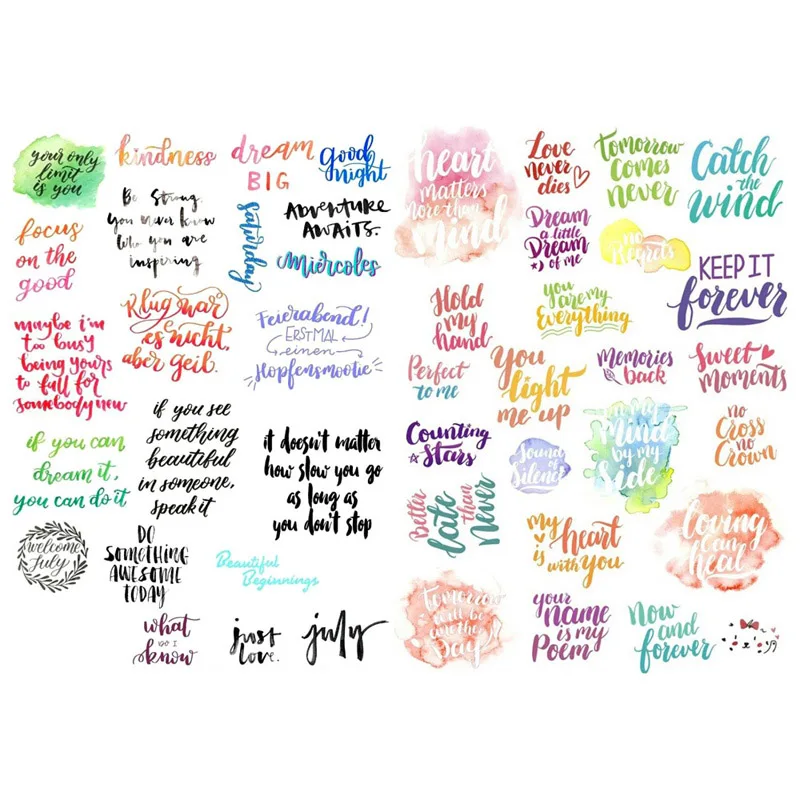 your only
limit
is you
kindness
dream
BIG
good
night
Be Strong.
You never know
who you are
inspiring
Saturday
ADVENTURE
AWAITS.
Miércoles
focus
on the
good
Klug war
es nicht,
aber geil.
Feierabend!
ERSTMAL
einen
Hopfensmootie
maybe i'm
too busy
being yours
to fall for
somebody new
if you see
something
beautiful
in someone,
speak it
it doesn't matter
how slow you go
as long as
you don't stop
if you can
dream it,
you can do it
welcome
July
DO
SOMETHING
AWESOME
TODAY
Beautiful
Beginnings
what
DO I
know
just
love.
july
heart
matters
more than
mind
Love
never
dies
Tomorrow
comes
never
Catch
the
wind
Dream
a little
Dream
of me
no
Regrets
KEEP IT
forever
Hold
my
hand
you
are my
Everything
Perfect
to me
You
light
me up
Memories
back
Sweet
moments
Counting
Stars
Sound
of
Silence
Mind
by my
Side
no
Cross
no
Crown
Better
late
than
Never
My
heart
is
with you
Loving
can
heal
Tomorrow
will be
another
Day
your
name
is my
Poem
Now
and
forever